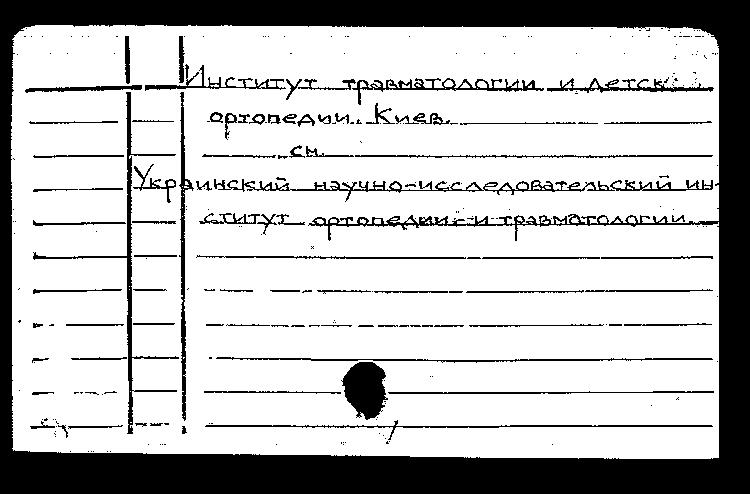 Институт травматологии и детск.
ортопедии. Киев.
см.
Украинский научно-исследовательский ин-
ститут ортопедии и травматологии.